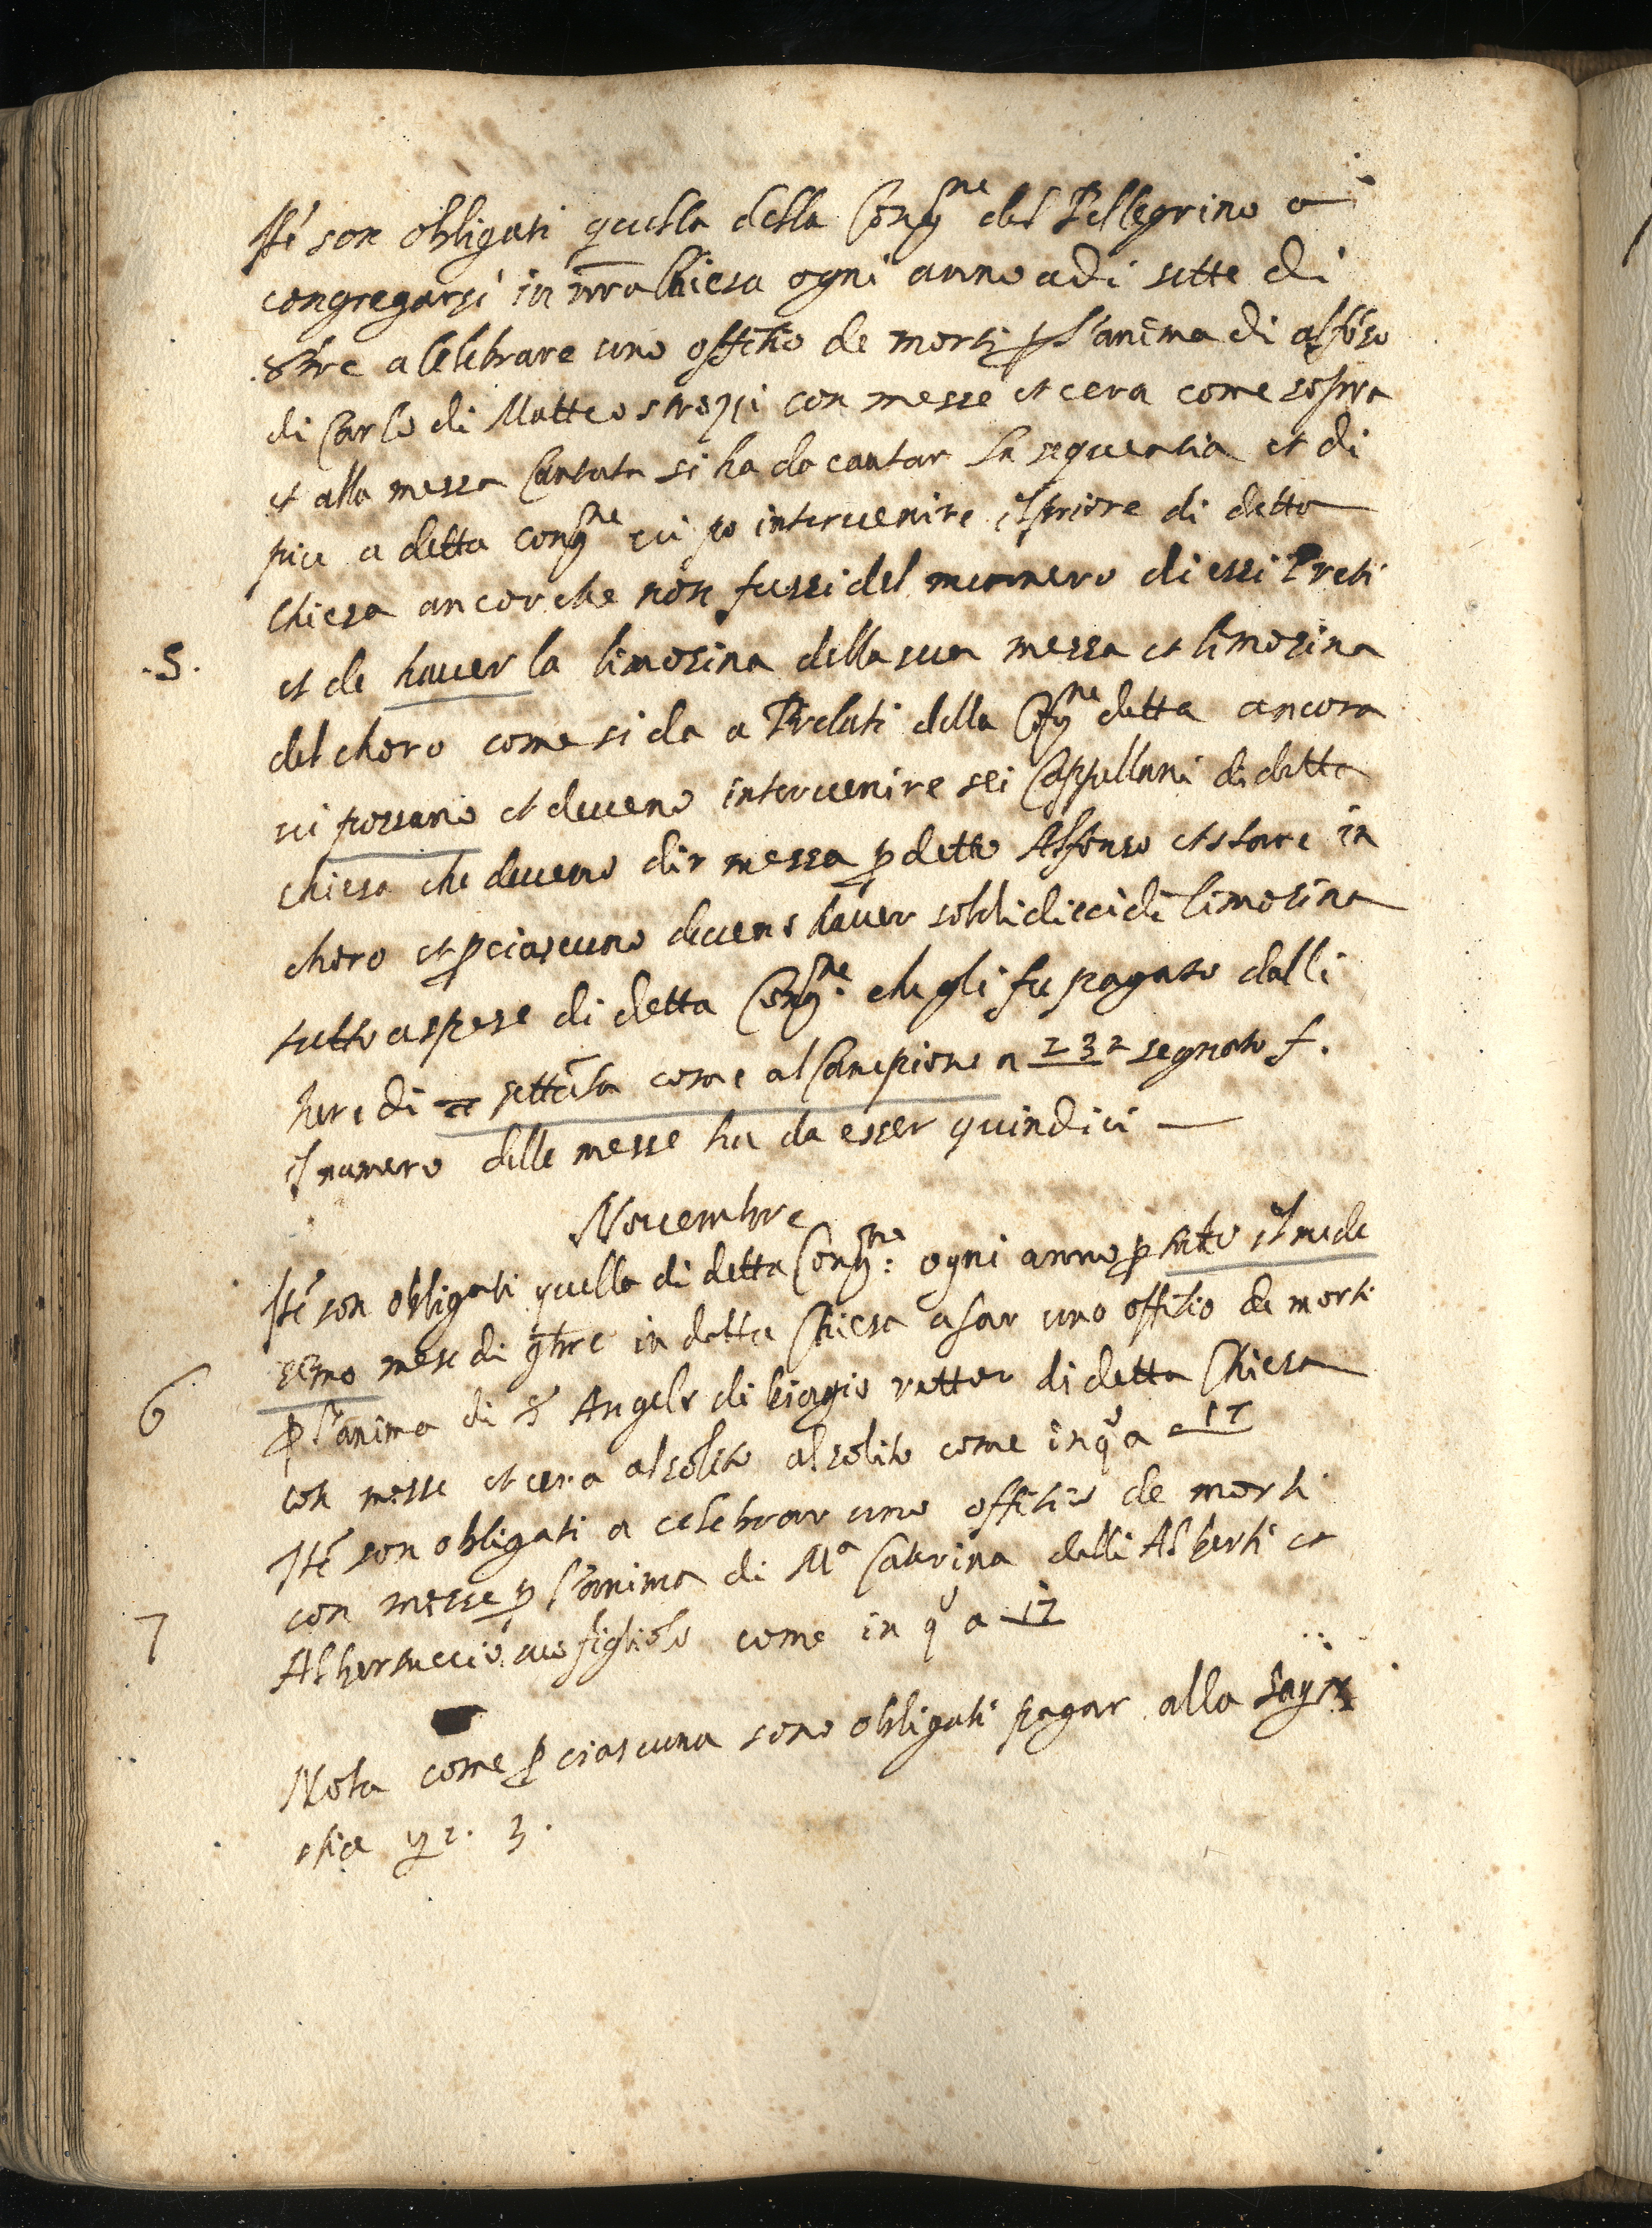 Ité son obligati quella della Congne del Pellegrino a
congregarsi in nra Chiesa ogni anno adi sette di
8bre a Celebrare uno offitio de morti p l'anima di alfõso
di Carlo di Matteo strozzi con messe et cera come sopra
et alla messa Cantata si ha da cantar la sequentia et di
piu a detta congne vi po intervenire il priore di detta
Chiesa ancor che non fussi del numero di essi Preti
.5. et de haver la limosina della sua messa et limosina
del choro come si da a Prelati della Congne detta ancora
vi possano et deveno intervenire sei Cappellani di detta
chiesa che deveno dir messa p detto Alfonso et stare in
choro et p ciascuno deveno haver soldi dieci di limosina
tutto a spese di detta Congne. che gli fu pagato dalli
heredi settãta come al Campione a 232 segnato f.
il numero delle messe ha da esser quindici
Novembre
Ité son obligati quella di detta Congne: ogni anno p tutto il mede
simo mese di 9bre in detta Chiesa a far uno offitio de morti
6 p l'anima di S Angelo di biagio rettor di detta Chiesa
con messe et cera al solito al solito come in qo a 17
Ité son obligati a celebrar uno offitio de morti
con messe p l'anima di Ma Caterina delli Alberti et
7 Albertuccio suo figliolo come in qo a 17
Nota come p ciascuna sono obligati pagar alla Sagre
stia 2. 3.